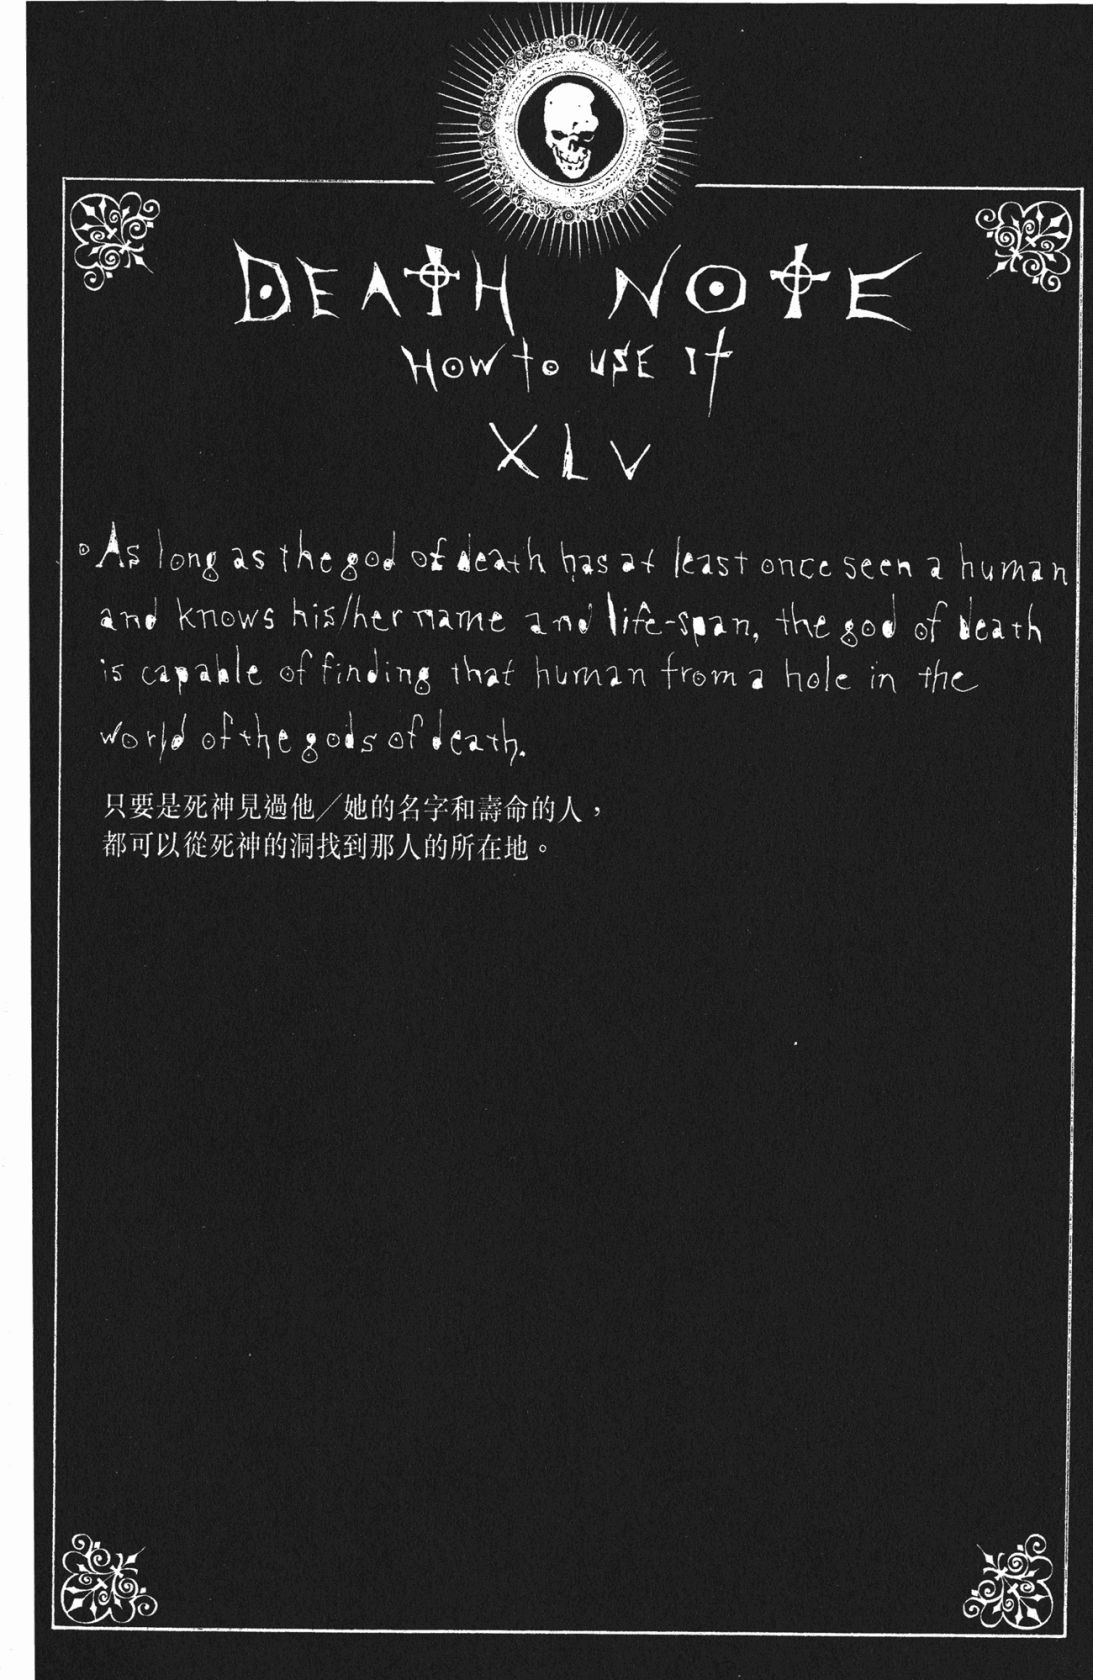 DEATH NOTE
HOW to USE It
XLV
。As long as the god of death has at least once seen a human
and knows his/her name and life-span, the god of death
is capable of finding that human from a hole in the
world of the gods of death.
只要是死神見過他／她的名字和壽命的人，
都可以從死神的洞找到那人的所在地。